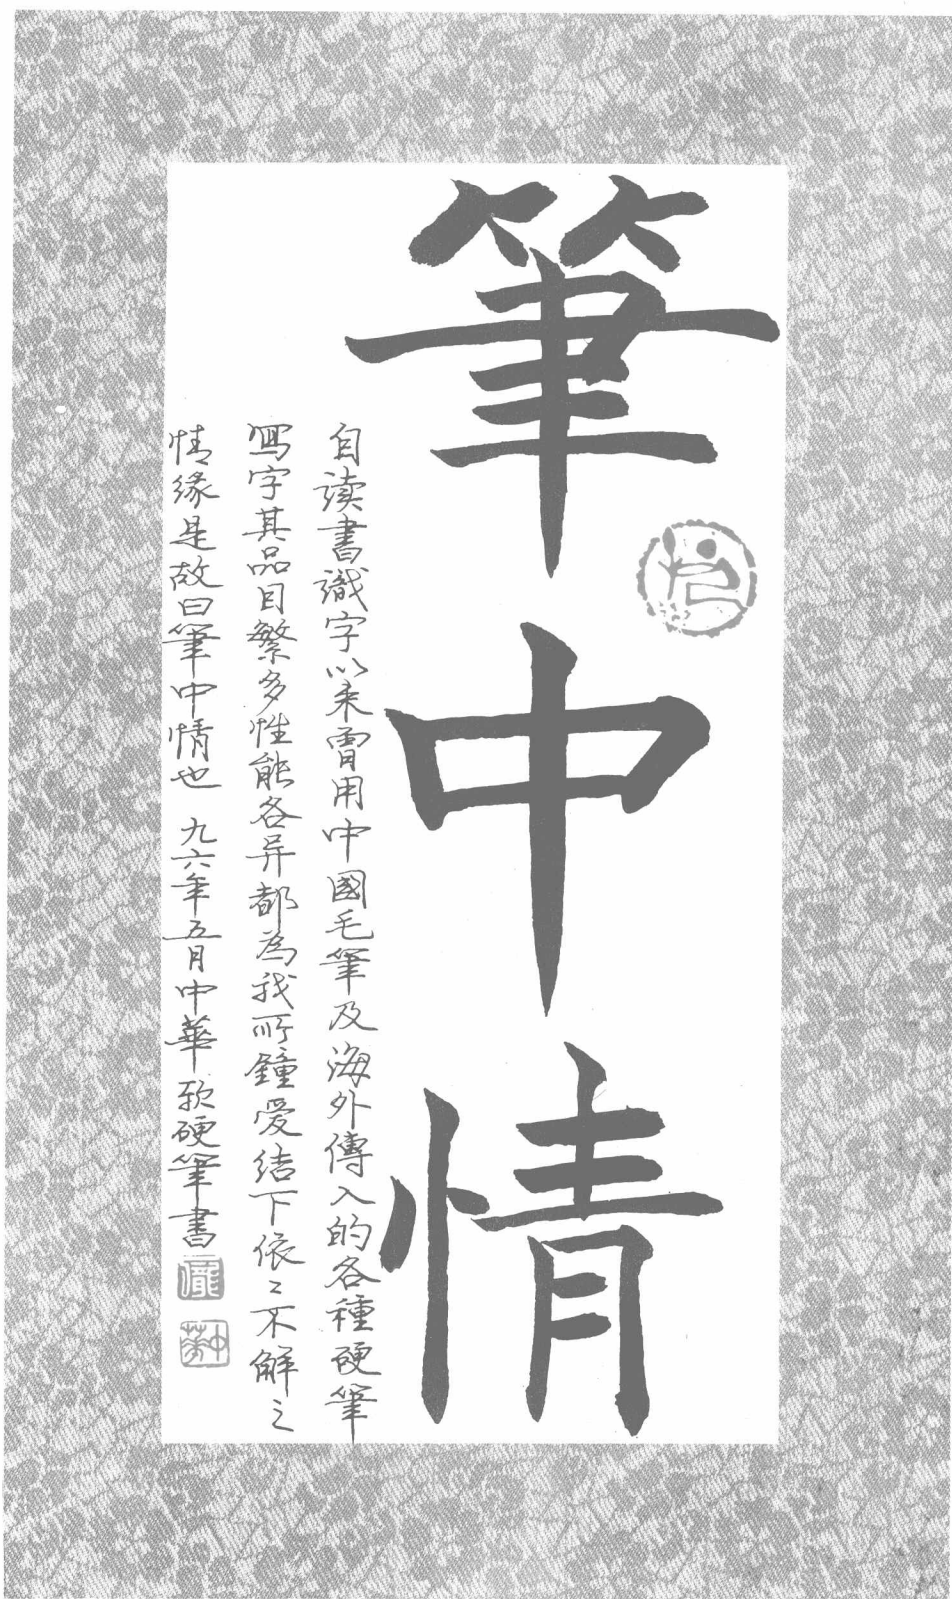 筆中情
自读書識字以来曾用中國毛筆及海外傳入的各種硬筆
寫字其品目繁多性能各异都為我所鐘愛結下依〻不解之
情緣是故曰筆中情也 九六年五月中華软硬筆書
中華